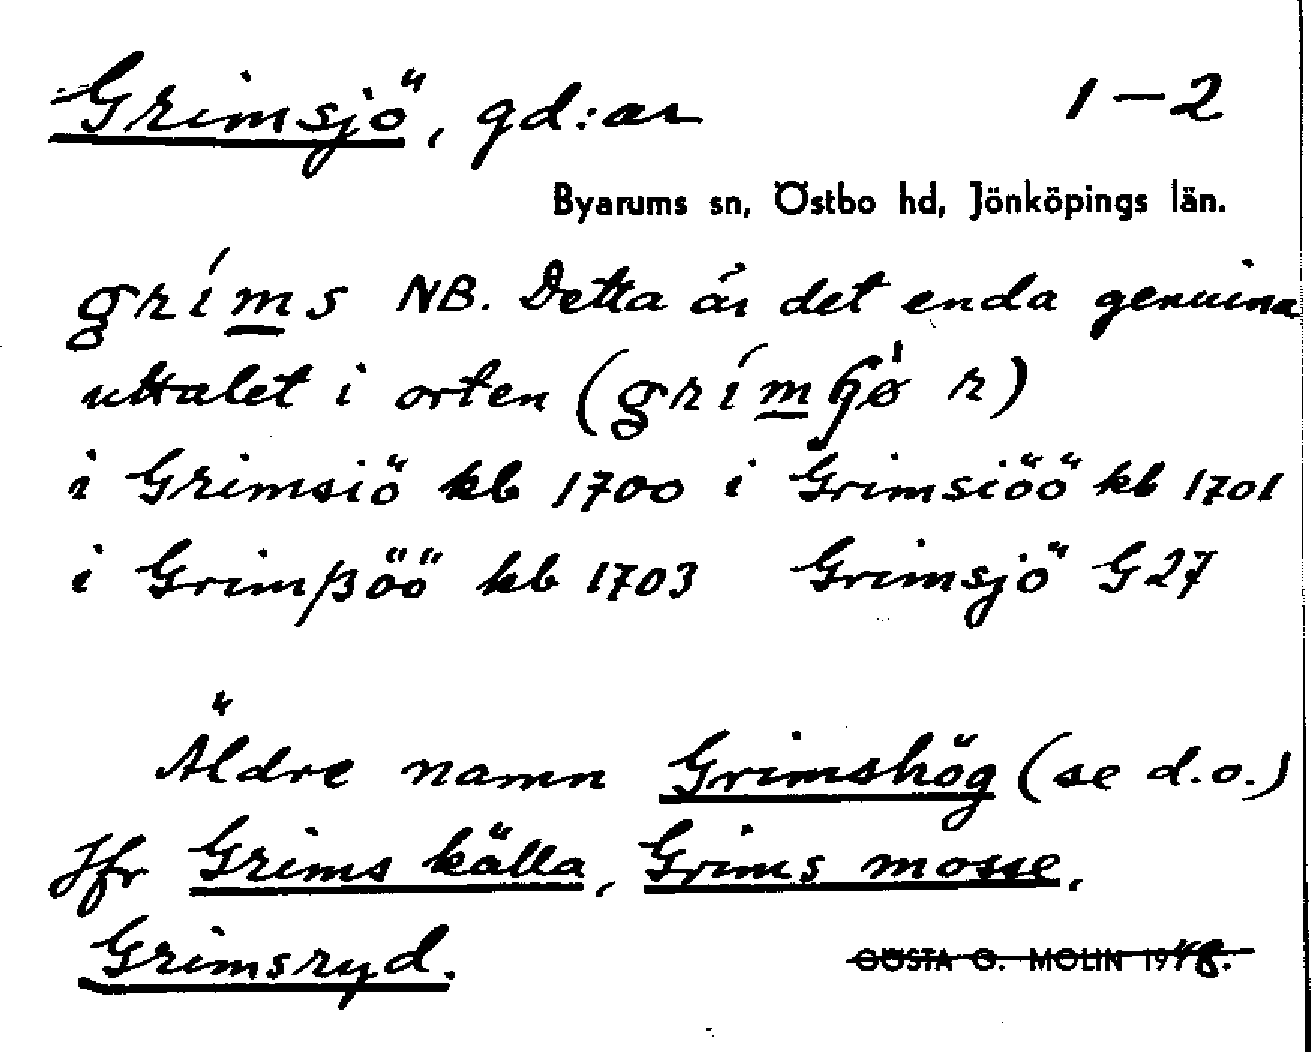 Grimsjö, gd:ar 1–2
Byarums sn, Östbo hd, Jönköpings län.
gríms NB. Detta är det enda genuina
uttalet i orten (grímʃø̍ r)
i Grimsiö kb 1700 i Grimsiöö kb 1701
i Grimßöö kb 1703 Grimsjö G 27
Äldre namn Grimshög (se d.o.)
Jfr Grims källa, Grims mosse,
Grimsryd.
GÖSTA O. MOLIN 1948.